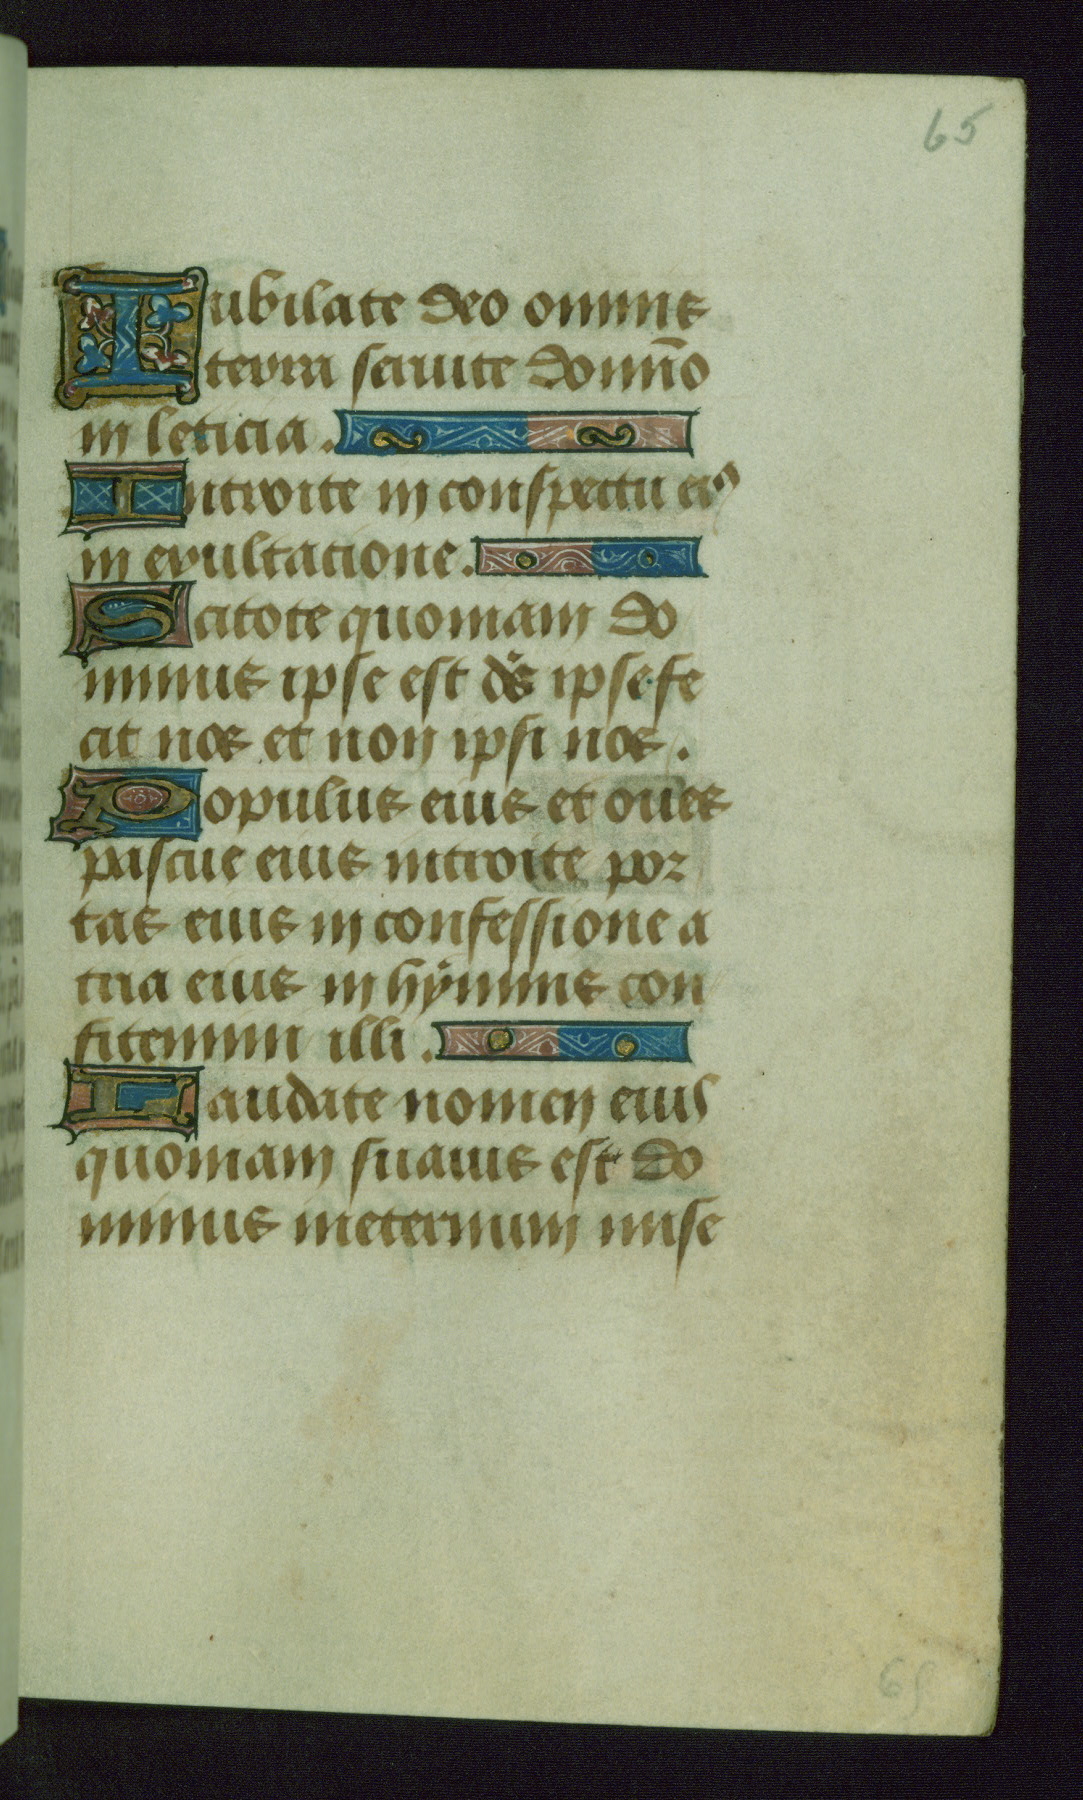 65
Iubilate deo omnis
terra seruite domi̅o
in leticia.
Introite in conspectu eiꝰ
in exultacione.
Scitote quoniam do
minus ipse est d̅s ipse fe
cit nos et non ipsi nos.
Populus eius et oues
pascue eius introite por
tas eius in confessione a
tria eius in hẏmnis con
fitemini illi.
Laudate nomen eius
quoniam suauis est do
minus ineternum mise
65